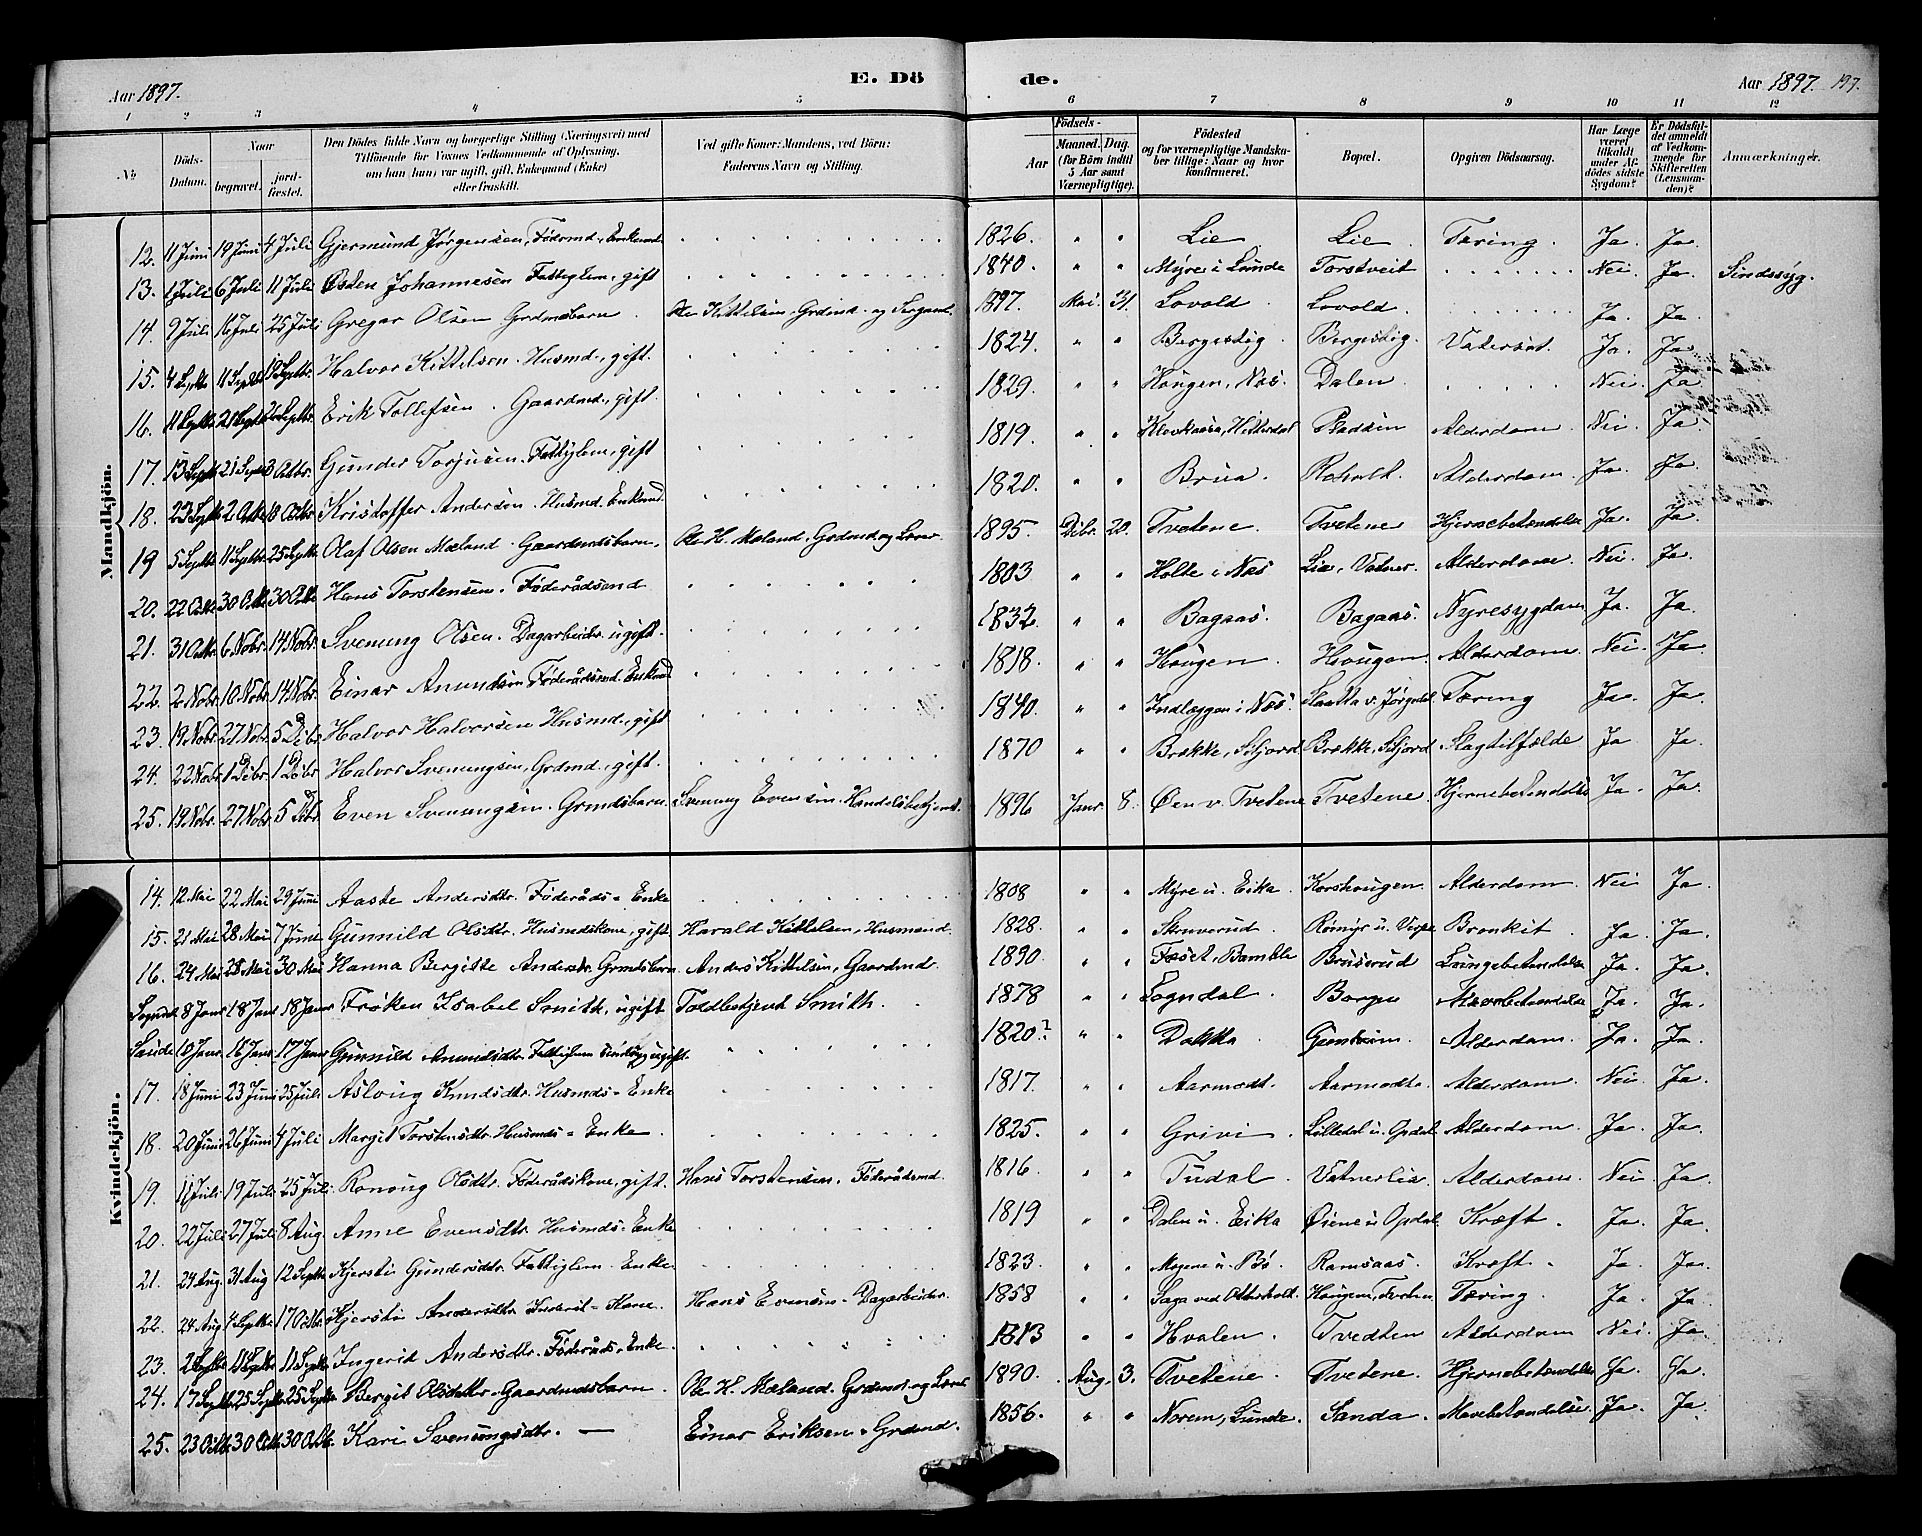 Aar 1897. E. Dö
de. Aar 1897. 197.
1 2 3 4 5
6 7 8 9 10 11 12
No Döds-Datum. Naar begravet. jord-fæstet. Den Dödes fulde Navn og borgerlige Stilling (Næringsvei) med Tilföiende for Voxnes Vedkommende af Oplysning, om han (hun) var ugift, gift, Enkemand (Enke) eller fraskilt. Ved gifte Koner: Mandens, ved Börn: Faderens Navn og Stilling.
Födsels- Aar Maaned. Dag. (for Börn indtil 5 Aar samt Værnepligtige). Födested og for værnepligtige Mandska-ber tillige: Naar og hvor konfirmeret. Bopæl. Opgiven Dödsaarsag. Har Læge været tilkaldt under Af-dödes sidste Sygdom? Er Dödsfal-det anmeldt af Vedkom-mende for Skifteretten (Lensman-den)? Anmærkninger.
Mandkjön.
12. 11 Juni 19 Juni 4 Juli Gjermund Jörgensen, Födrmd., Enkemd. 1826. " " Lie Lie Tæring. Ja. Ja.
13. 1 Juli 6 Juli 11 Juli Østen Johannesen Fattiglem, gift 1840. " " Myre i Lunde Torstveit Nei. Ja. Sindssyg.
14. 9 Juli 16 Juli 25 Juli Gregar Olsen Grdmdsbarn. Ole Kittelsen, Grdmd. og Sergant. 1897. Mai. 31. Lovold Lovold. Ja. Ja.
15. 4 Septbr 11 Septbr 19 Septbr. Halvor Kittelsen. Husmd., gift. 1824. " " Bergestig. Bergestig. Vatersot. Ja. Ja.
16. 11 Septbr 20 Septbr 26 Septbr. Erik Tollefsen. Gaardmd., gift. 1829. " " Hougen, Næs. Dalen. Nei. Ja
17. 13 Septbr 21 Septbr 3 Octbr. Gunder Torjusen. Fattiglem, gift 1819. " " Hitterdal Alderdom. Nei. Ja.
18. 23 Septbr 2 Octbr 10 Octbr Kristoffer Andersen. Husmd. Enkemd. 1820. " " Brua. Reholt. Alderdom. Ja. Ja.
19 5 Septbr 11 Septbr 25 Septbr Olaf Olsen Mæland. Gaardmdsbarn. Ole H. Mæland, Grdmd og Lærer. 1895. Dcbr. 20. Tvetene. Tvetene Hjernebetændelse Ja. Ja.
20. 22 Octbr 30 Octbr 30 Octbr Hans Torstensen. Föderådsmd 1803 " " Holte i Næs Lia, Vatner. Alderdom. Nei. Ja.
21. 31 Octbr. 6 Nobr. 14 Nobr. Svenung Olsen. Dagarbeider. ugift. 1832. " " Bagaas. Bagaas. Nyresygdom Ja. Ja.
22. 2 Nobr. 10 Nobr. 14 Nobr. Einar Anundsen Föderådsmd. Enkemd 1818. " " Hougen. Hougen. Alderdom. Nei. Ja.
23. 19 Nobr. 27 Nobr. 5 Dcbr. Halvor Halvorsen Husmd., gift 1840. " " Indlæggen i Næs. Slaatta v. Jørgedal Tæring Ja. Ja.
24. 22 Nobr. 1 Dcbr. 1 Dcbr Halvor Svenungsen, Grdmd., gift. 1870 " " Brække, Sifjord Brække, Sifjord Slagtilfælde Ja Ja.
25. 19 Nobr. 27 Nobr. 5 Dcbr. Even Svenungsen. Grmdsbarn. Svenung Evensen. Handelsbetjent. 1896 Janr. 8. Øen v. Tvetene Tvetene. Hjernebetændelse Ja. Ja.
Kvindekjön.
14. 12 Mai 22 Mai 29 Juni Aaste Andersdtr. Föderåds-Enke 1808 " " Myre u. Eika. Korshougen. Alderdom. Nei Ja.
15. 21 Mai 28 Mai 7 Juni Gunnild Olsdtr. Husmdskone, gift Harald Kittelsen, Husmand. 1828. " " Skruverud. Römyr u. Verpe Bronkit. Ja. Ja.
16. 24 Mai 28 Mai 30 Mai Hanna Bergitte Andersdtr. Grmdsbarn Anders Kittelsen, Gaardmd. 1890. " " Fæset, Bamble Bruserud Lungebetændelse Ja. Ja.
Sogndal 8 Janr 18 Janr 18 Janr Frøken Isabel Smith, ugift Toldbetjent Smith. 1878 " " Sogndal. Borgen Ja. Ja.
Saude 10 Janr. 16 Janr. 17 Janr Gunnild Anundsdtr. Fattiglem Sindssyg ugift. 1820? " " Dakka Gunheim. Alderdom. Ja. Ja.
17. 18 Juni 23 Juni 25 Juli Aslaug Knudsdtr. Husmds-Enke 1817. " " Aarmodt. Aarmodt. Alderdom. Nei Ja.
18. 20 Juni 26 Juni 4 Juli Margit Torstensdtr. Husmds-Enke. 1825. " " Grivi. Lilledal u. Opdal Alderdom. Ja. Ja.
19. 11 Juli 19 Juli 25 Juli. Ronoug Olsdtr. Föderådskone, gift. Hans Torstensen. Föderådsmd. 1816. " " Tudal. Vatnerlia. Alderdom. Nei. Ja.
20. 22 Juli 27 Juli 8 Aug. Anne Evensdtr. Husmds-Enke 1819 " " Dalen u. Eika Øiene u. Opdal. Kræft. Ja. Ja.
21. 24 Aug. 31 Aug 12 Septbr Kjersti Gundersdtr. Fattiglem. Enke. 1823. " " u. Bö. Ramsaas. Kræft. Ja. Ja.
22. 24 Aug. 1 Septbr 17 Octbr. Kjersti Andersdtr. Inderst-Kone. Hans Evensen. Dagarbeider. 1858 " " Saga ved Otterholt. Hougene, Tæring. Ja. Ja
23. 2 Septbr 11 Septbr 11 Septbr. Ingerid Andersdtr. Föderåds-Enke. 1813 " " Hvalen. Tvedten Alderdom Nei. Ja.
24. 17 Septbr 25 Septbr 25 Septbr. Bergit Olsdtr. Gaardmdsbarn. Ole H. Mæland. Grdmd. og Lærer 1890. Aug. 3. Tvetene. Tvetene. Hjernebetændelse Ja. Ja.
25. 23 Octbr 30 Octbr 30 Octbr. Kari Svenungsdtr. — Einar Eriksen. Grdmd. 1856. " " Norem, Lunde. Sanda. Mavebetændelse Ja. Ja.